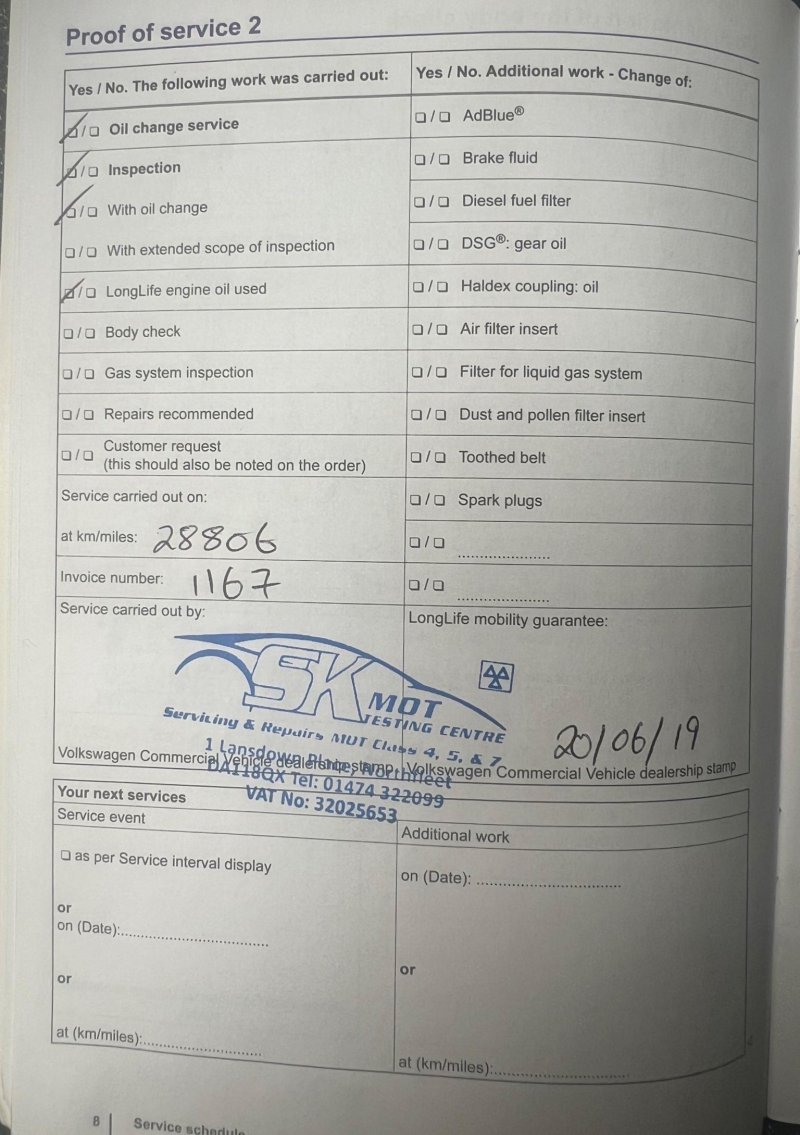 Proof of service 2
Yes / No. The following work was carried out:
☑ / ❑ Oil change service
☑ / ❑ Inspection
☑ / ❑ With oil change
❑ / ❑ With extended scope of inspection
☑ / ❑ LongLife engine oil used
❑ / ❑ Body check
❑ / ❑ Gas system inspection
❑ / ❑ Repairs recommended
❑ / ❑ Customer request
(this should also be noted on the order)
Service carried out on:
at km/miles: 28806
Invoice number: 1167
Service carried out by:
Yes / No. Additional work - Change of:
❑ / ❑ AdBlue®
❑ / ❑ Brake fluid
❑ / ❑ Diesel fuel filter
❑ / ❑ DSG®: gear oil
❑ / ❑ Haldex coupling: oil
❑ / ❑ Air filter insert
❑ / ❑ Filter for liquid gas system
❑ / ❑ Dust and pollen filter insert
❑ / ❑ Toothed belt
❑ / ❑ Spark plugs
❑ / ❑ ......................
❑ / ❑ ......................
LongLife mobility guarantee:
SK MOT
TESTING CENTRE
Servicing & Repairs MOT Class 4, 5, & 7
1 Lansdown Place, Northfleet
DA118QX Tel: 01474 322099
VAT No: 32025653
20/06/19
Volkswagen Commercial Vehicle dealership stamp
Volkswagen Commercial Vehicle dealership stamp
Your next services
Service event
❑ as per Service interval display
or
on (Date):....................................
or
at (km/miles):.............................
Additional work
on (Date): ...................................
or
at (km/miles):................................
8 Service schedule